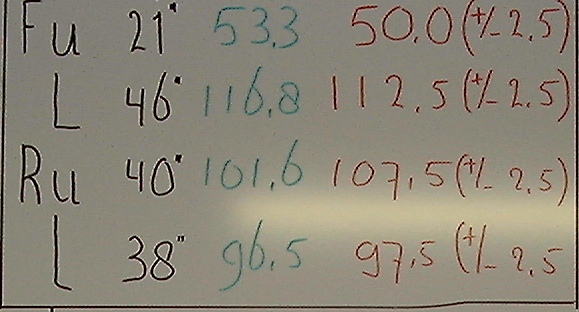 Fu 21" 53.3 50.0 (+/- 2.5)
L 46" 116.8 112.5 (+/- 2.5)
Ru 40" 101.6 107.5 (+/- 2.5)
L 38" 96.5 97.5 (+/- 2.5